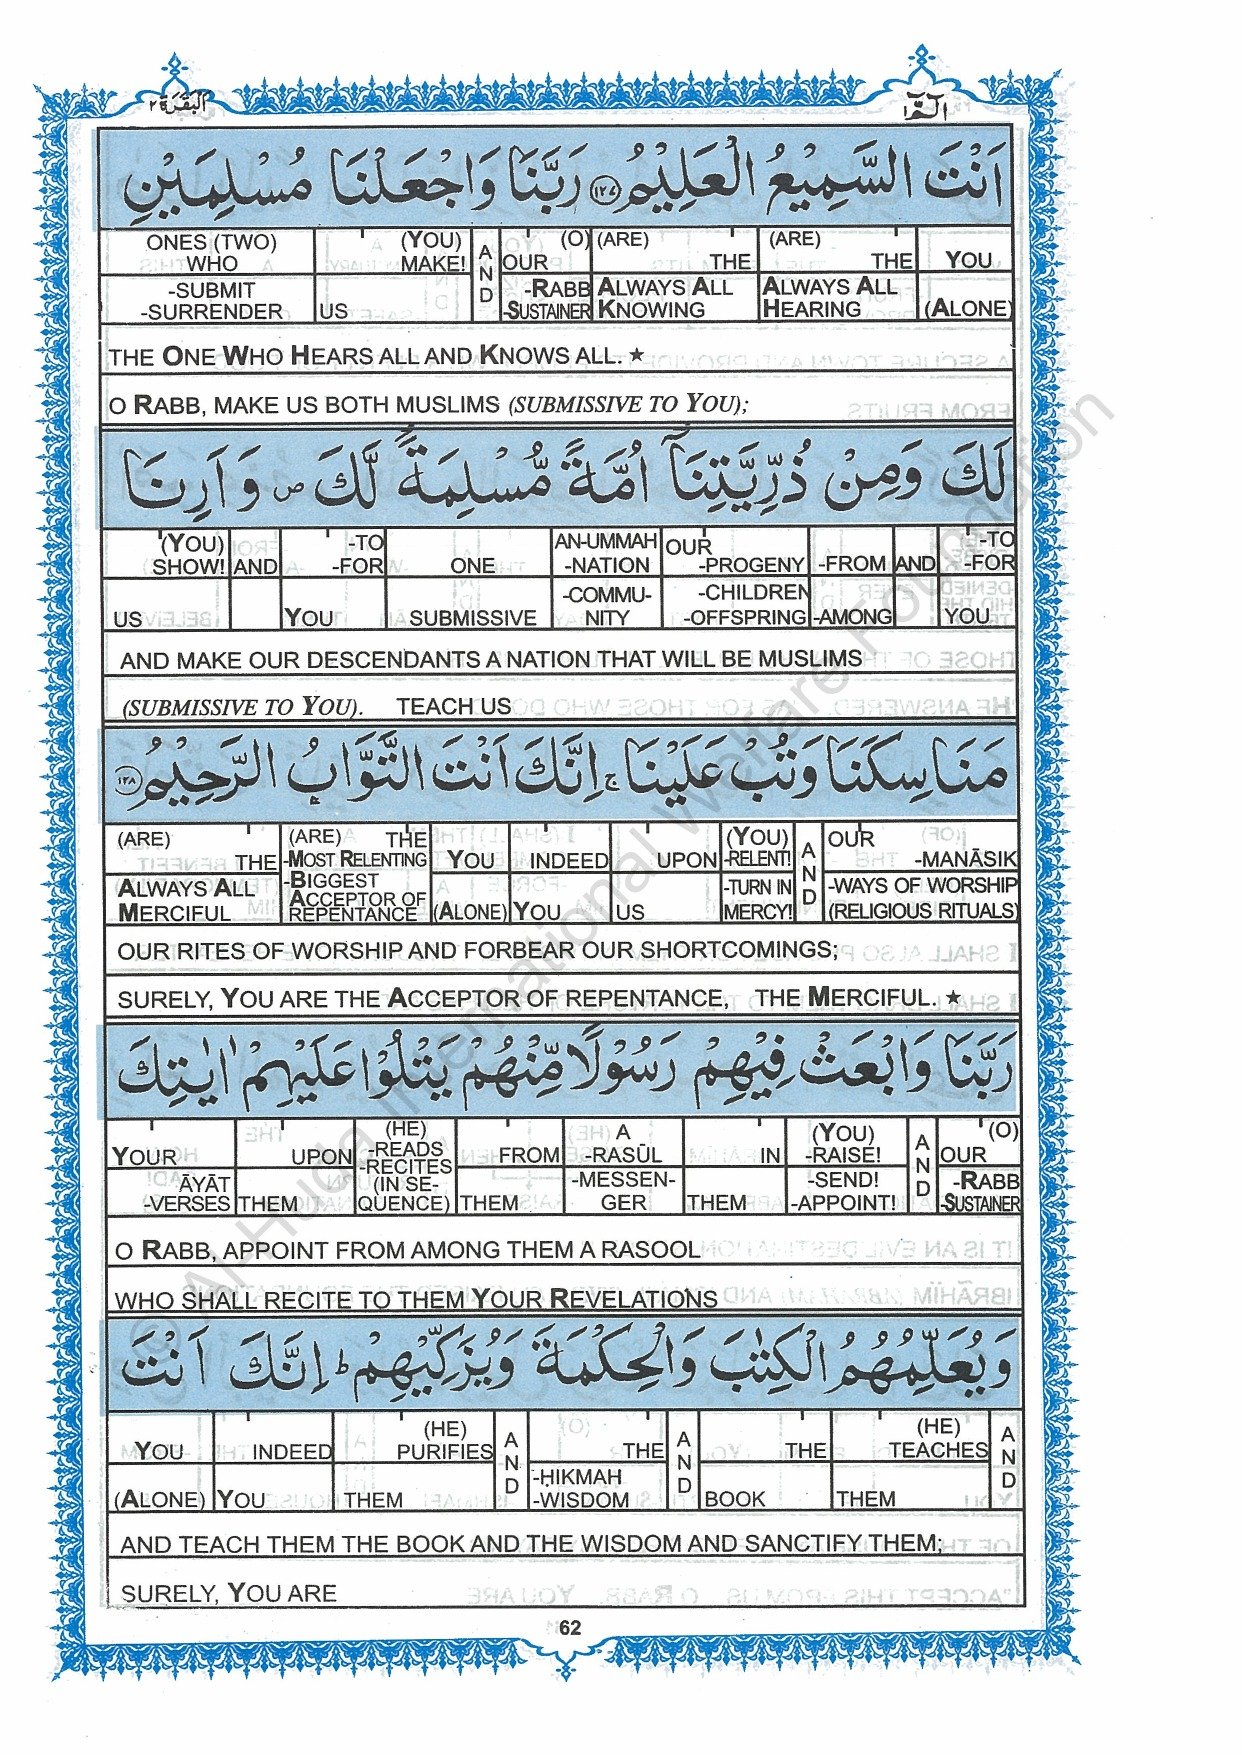 البقرة ٢
الٓمّٓ ١
اَنْتَ السَّمِيْعُ الْعَلِيْمُ ١٢٧ رَبَّنَا وَاجْعَلْنَا مُسْلِمَيْنِ
ONES (TWO) WHO (YOU) MAKE! AND (O) OUR (ARE) THE (ARE) THE YOU
-SUBMIT -SURRENDER US -RABB -SUSTAINER ALWAYS ALL KNOWING ALWAYS ALL HEARING (ALONE)
THE ONE WHO HEARS ALL AND KNOWS ALL. ★
O RABB, MAKE US BOTH MUSLIMS (SUBMISSIVE TO YOU);
لَكَ وَمِنْ ذُرِّيَّتِنَآ اُمَّةً مُّسْلِمَةً لَّكَ ص وَاَرِنَا
(YOU) SHOW! AND -TO -FOR ONE AN-UMMAH -NATION OUR -PROGENY -FROM AND -TO -FOR
US YOU SUBMISSIVE -COMMU- NITY -CHILDREN -OFFSPRING -AMONG YOU
AND MAKE OUR DESCENDANTS A NATION THAT WILL BE MUSLIMS
(SUBMISSIVE TO YOU). TEACH US
مَنَاسِكَنَا وَتُبْ عَلَيْنَا ج اِنَّكَ اَنْتَ التَّوَّابُ الرَّحِيْمُ ١٢٨
(ARE) THE (ARE) THE -MOST RELENTING YOU INDEED UPON (YOU) -RELENT! AND OUR -MANĀSIK
ALWAYS ALL MERCIFUL -BIGGEST ACCEPTOR OF REPENTANCE (ALONE) YOU US -TURN IN MERCY! -WAYS OF WORSHIP (RELIGIOUS RITUALS)
OUR RITES OF WORSHIP AND FORBEAR OUR SHORTCOMINGS;
SURELY, YOU ARE THE ACCEPTOR OF REPENTANCE, THE MERCIFUL. ★
رَبَّنَا وَابْعَثْ فِيْهِمْ رَسُوْلًا مِّنْهُمْ يَتْلُوْا عَلَيْهِمْ اٰيٰتِكَ
YOUR UPON (HE) -READS -RECITES FROM A -RASŪL IN (YOU) -RAISE! AND (O) OUR
ĀYĀT -VERSES THEM (IN SE- QUENCE) THEM -MESSEN- GER THEM -SEND! -APPOINT! -RABB -SUSTAINER
O RABB, APPOINT FROM AMONG THEM A RASOOL
WHO SHALL RECITE TO THEM YOUR REVELATIONS
وَيُعَلِّمُهُمُ الْكِتٰبَ وَالْحِكْمَةَ وَيُزَكِّيْهِمْ ط اِنَّكَ اَنْتَ
YOU INDEED (HE) PURIFIES AND THE AND THE (HE) TEACHES AND
(ALONE) YOU THEM -ḤIKMAH -WISDOM BOOK THEM
AND TEACH THEM THE BOOK AND THE WISDOM AND SANCTIFY THEM;
SURELY, YOU ARE
62
© Al-Huda International Welfare Foundation